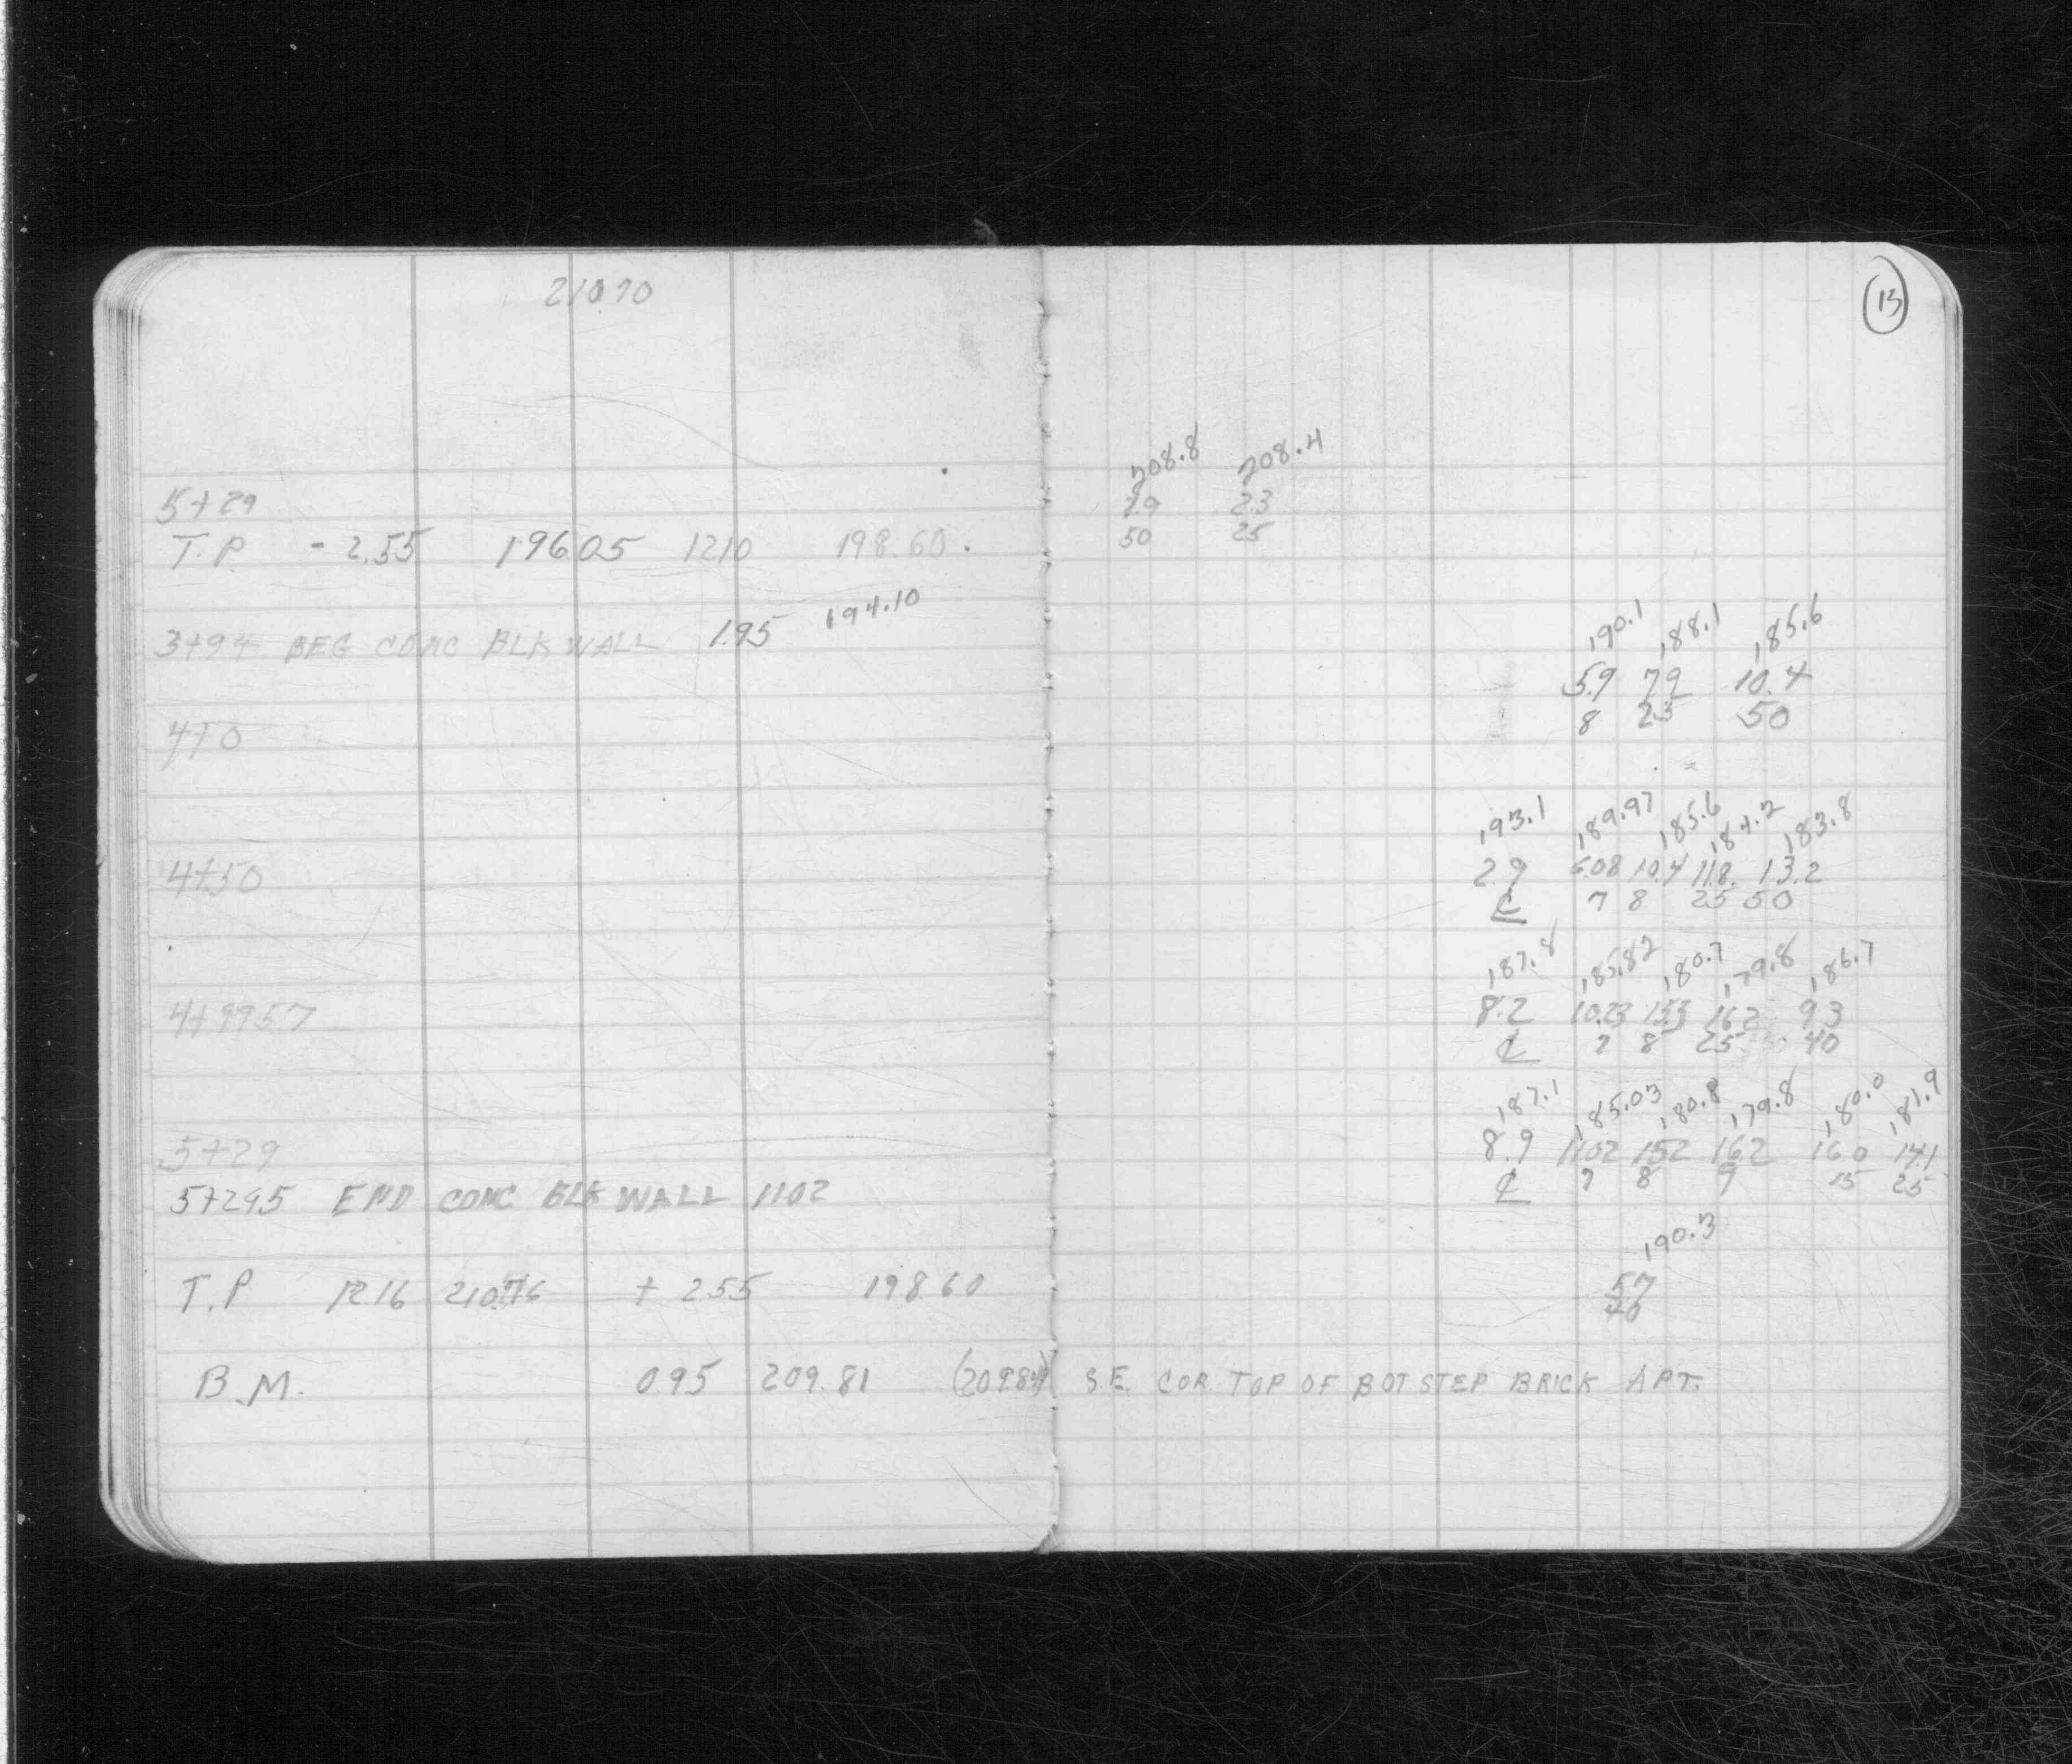 210 70
13
208.8 208.4
5+29 1.9 2.3
50 25
T.P. - 2.55 196.05 12.10 198.60
3+94 BEG CONC BLK WALL 1.95 194.10
190.1 188.1 185.6
5.9 7.9 10.4
8 25 50
4+0
193.1 189.97 185.6 184.2 183.8
4+50 2.9 6.08 10.4 11.8 13.2
℄ 7 8 25 50
187.8 185.82 180.7 179.8 186.7
4+9957 8.2 10.23 15.3 16.2 9.3
℄ 7 8 25 40
187.1 185.03 180.8 179.8 180.0 181.9
5+29 8.9 11.02 15.2 16.2 16.0 14.1
℄ 7 8 9 15 25
5+295 END CONC BLK WALL 11.02
190.3
T.P 12.16 210.76 + 2.55 198.60
5.7
40
B.M. 0.95 209.81 (209.84) S.E. COR. TOP OF BOT STEP BRICK APT.